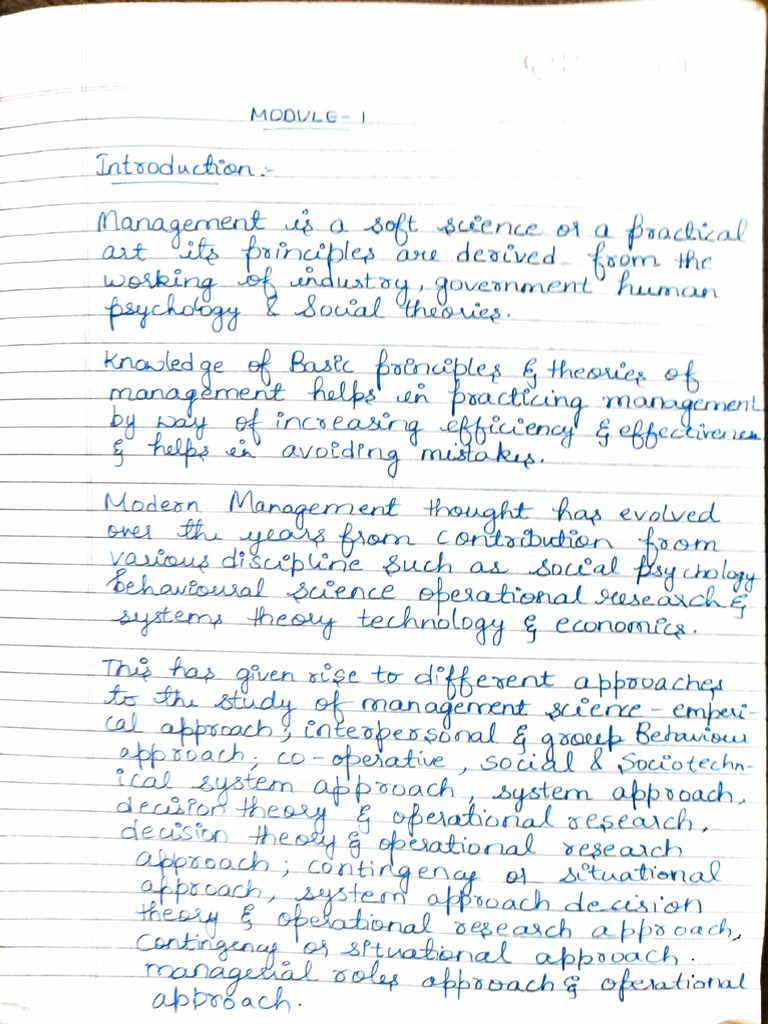 MODULE - 1
Introduction :-
Management is a soft science or a practical
art its principles are derived from the
working of industry, government human
psychology & Social theories.
Knowledge of Basic principles & theories of
management helps in practicing management
by way of increasing efficiency & effectiveness
& helps in avoiding mistakes.
Modern Management thought has evolved
over the years from contribution from
various discipline such as social psychology
behavioural science operational research &
systems theory technology & economics.
This has given rise to different approaches
to the study of management science - emperi-
cal approach; interpersonal & group Behaviour
approach; co-operative, social & Sociotechn-
ical system approach, system approach,
decision theory & operational research,
decision theory & operational research
approach; contingency or situational
approach, system approach decision
theory & operational research approach,
contingency or situational approach.
managerial roles approach & operational
approach.